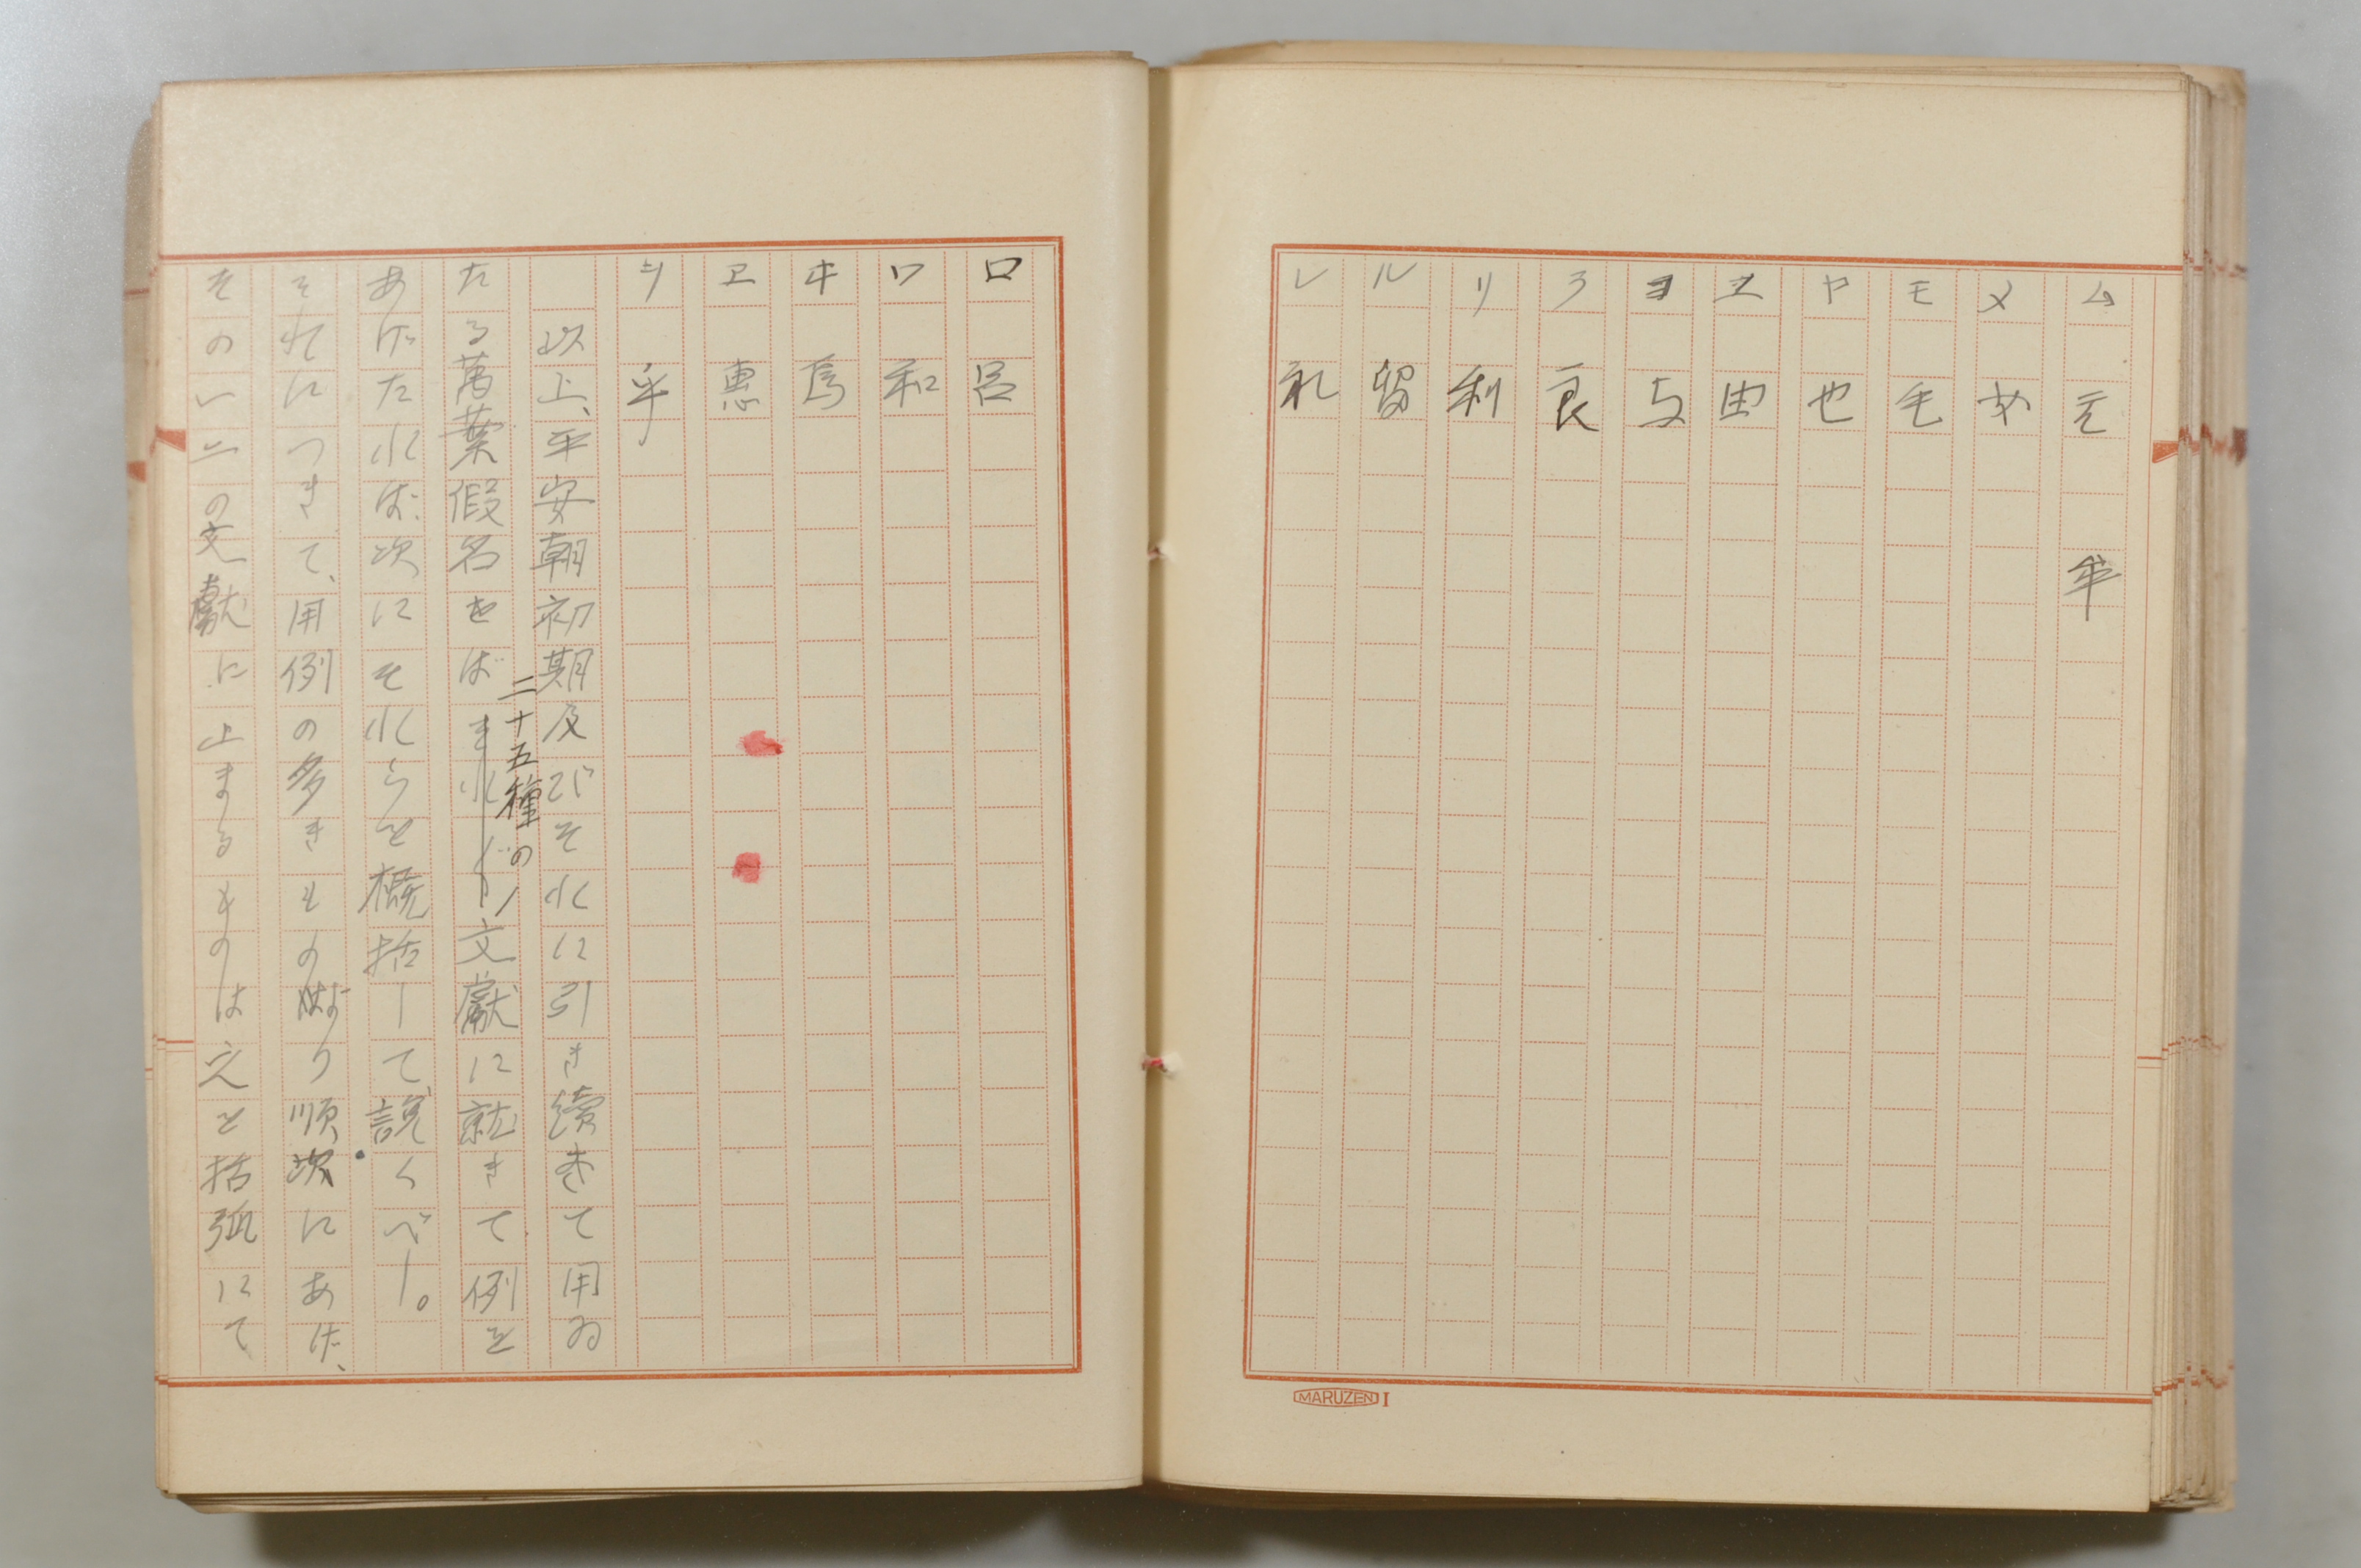 ム 无 牟
メ 女
モ 毛
ヤ 也
ユ 由
ヨ 与
ラ 良
リ 利
ル 留
レ 礼
MARUZEN I
ロ 呂
ワ 和
ヰ 為
ヱ 恵
ヲ 乎
以上、平安朝初期及びそれに引き續きて用ゐ
たる萬葉假名をば二十五種の文獻に就きて例を
あげたれば、次にそれらを概括して、説くべし。
それにつきて、用例の多きものより順次にあげ、
その一二の文獻に止まるものは之を括弧にて